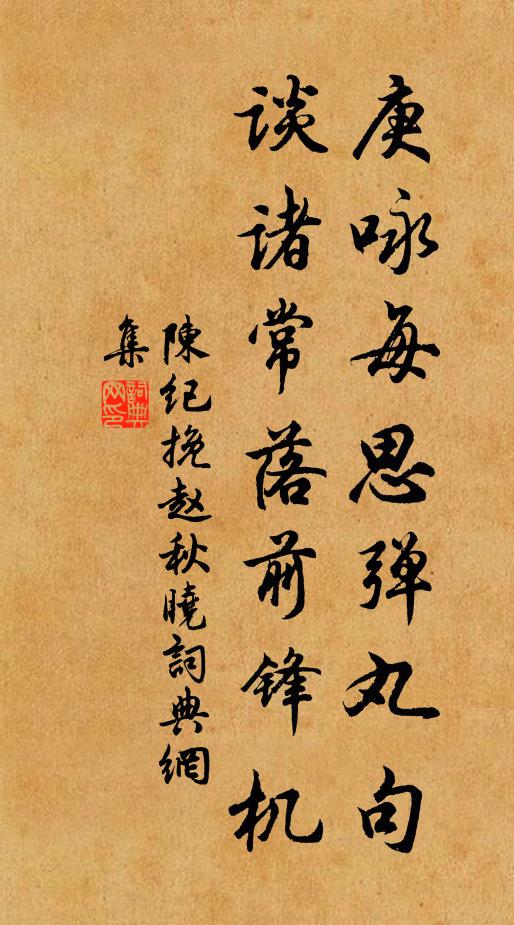 庚咏每思弹丸句
谈诸常落前锋机
陳纪挽赵秋曉詞典網
集
詞典网印